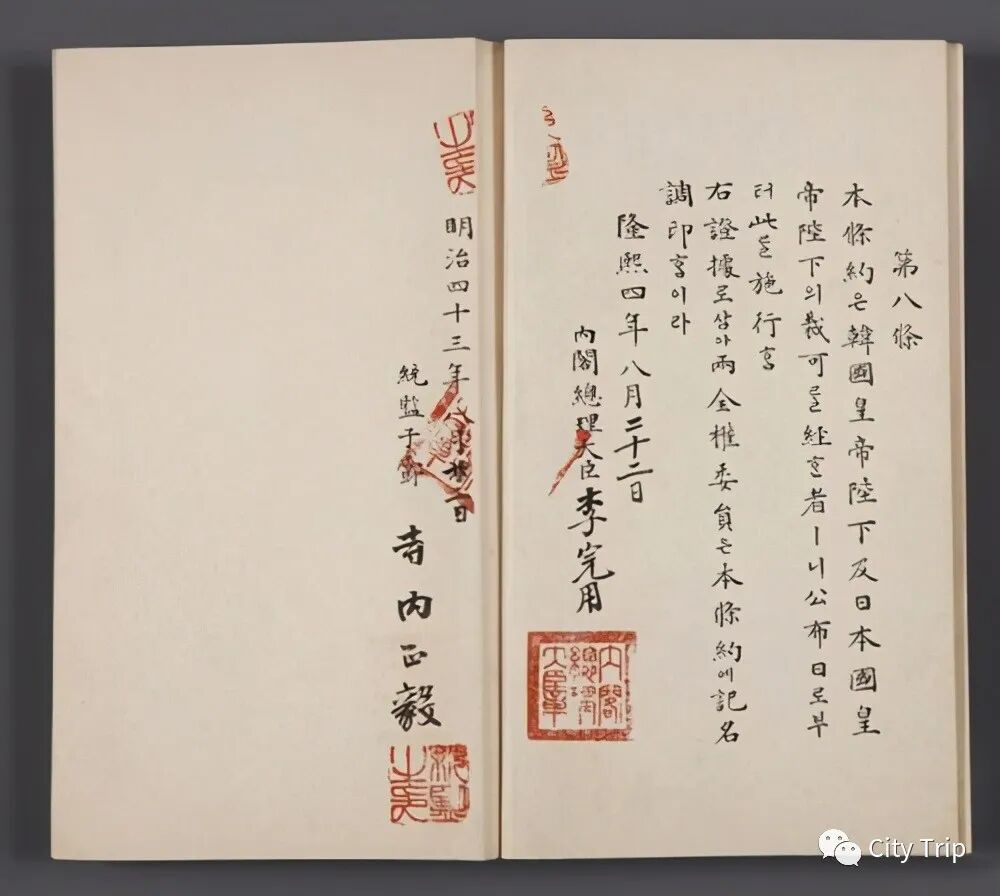 第八條
本條約은韓國皇帝陛下及日本國皇
帝陛下의裁可를經ᄒᆞᆫ者ㅣ니公布日로부
터此를施行ᄒᆞᆷ
右證據로삼아兩全權委員은本條約에記名
調印ᄒᆞᆷ이라
隆熙四年八月二十二日
內閣總理大臣 李完用
內閣總理大臣章
明治四十三年八月二日
統監子爵 寺內正毅
統監之印
City Trip